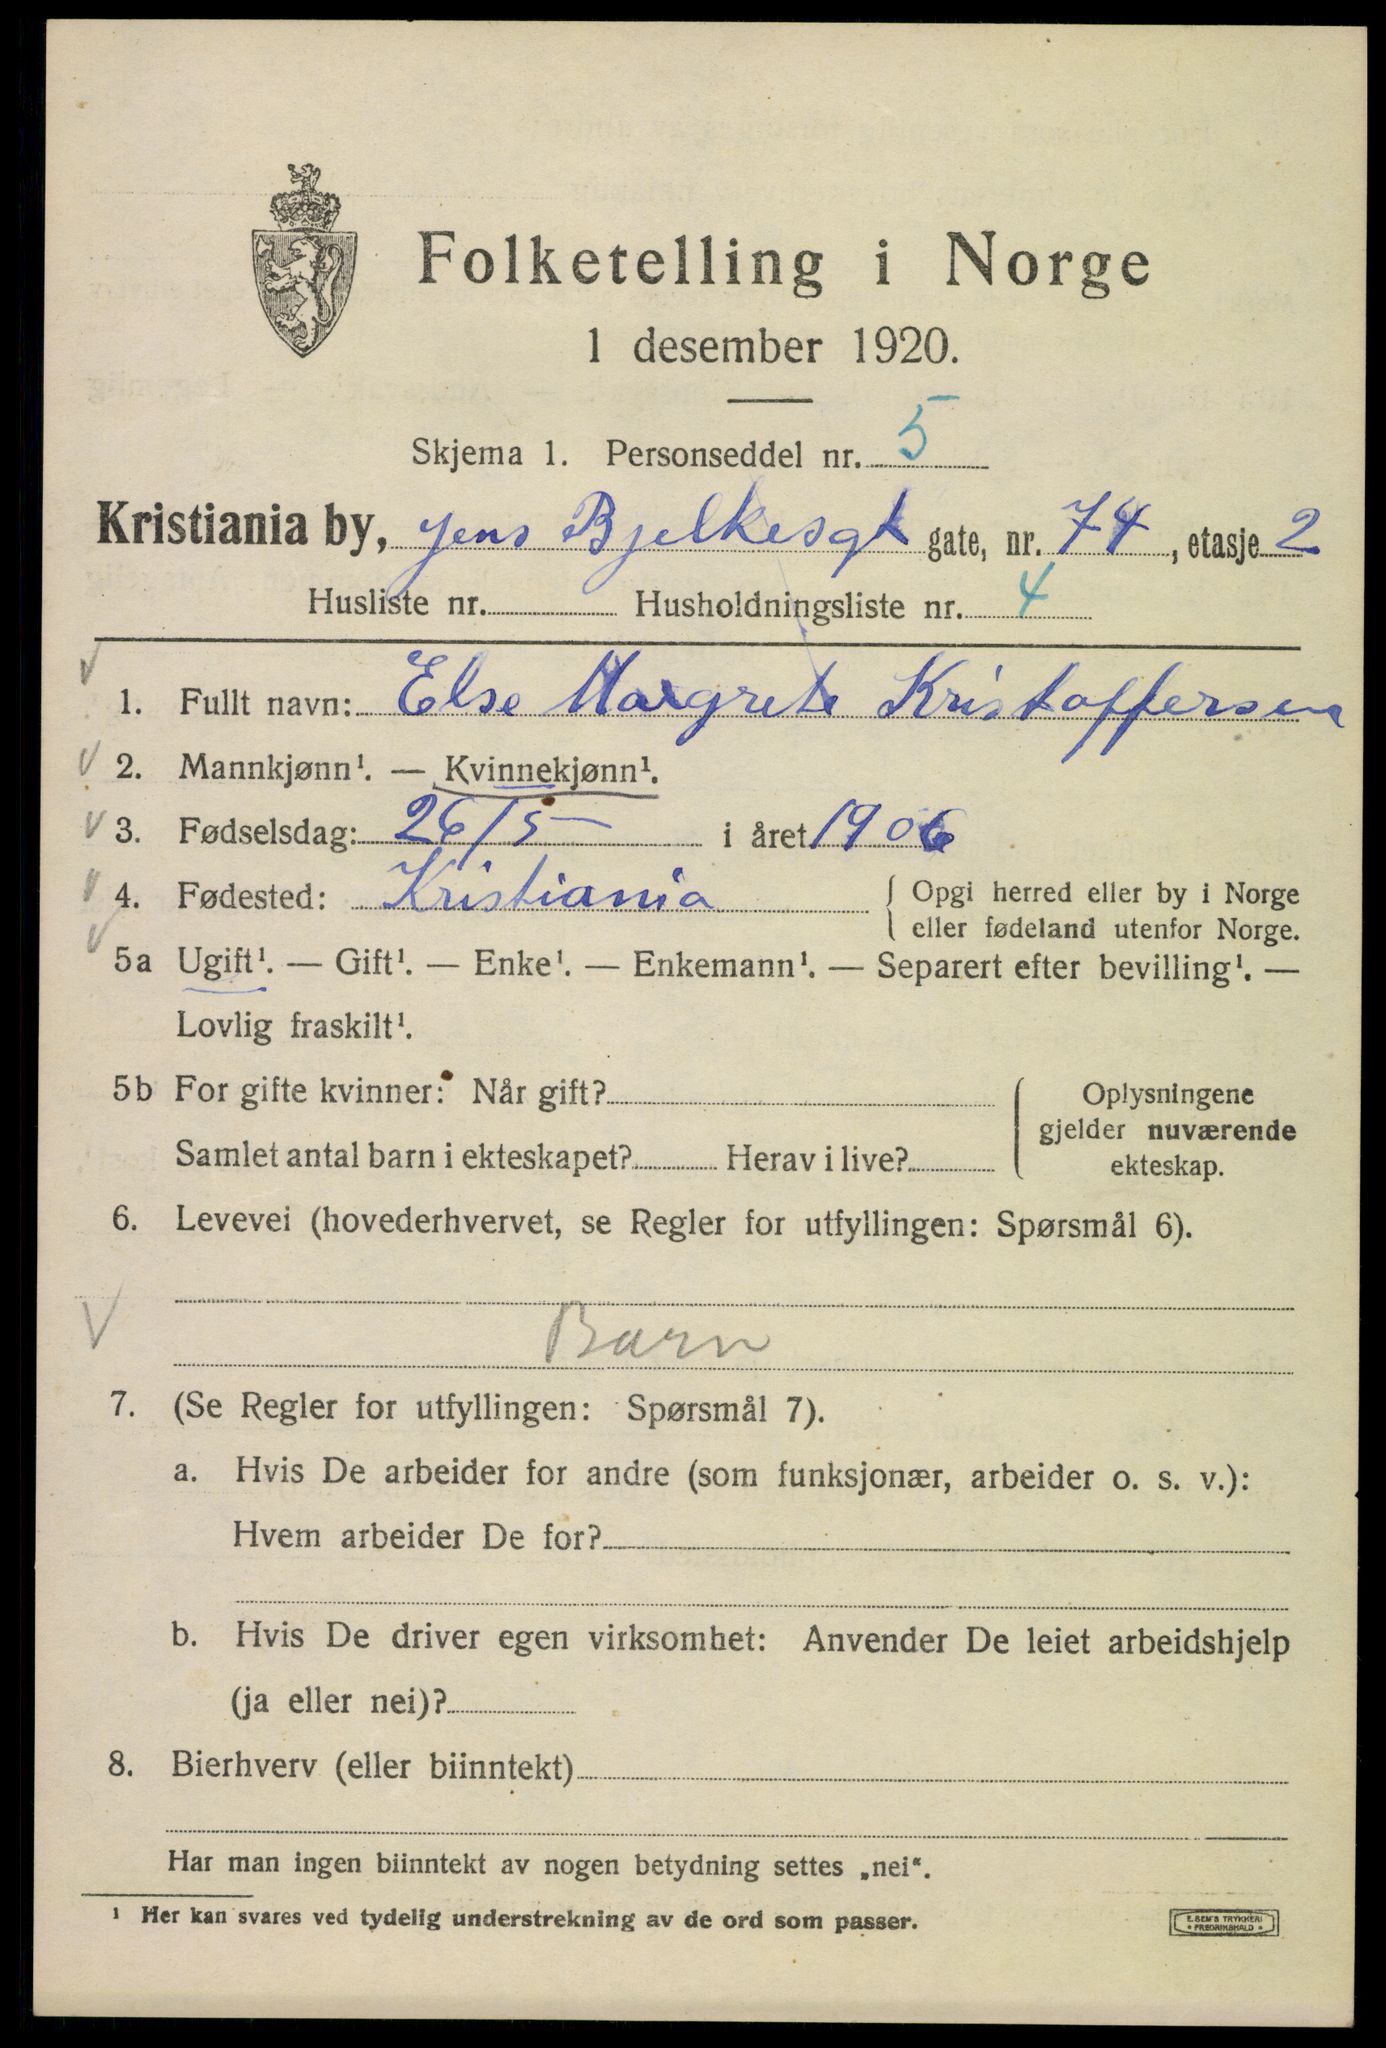 Folketelling i Norge
1 desember 1920.
Skjema 1. Personseddel nr. 5
Kristiania by, Jens Bjelkesgt gate, nr. 74, etasje 2
Husliste nr. Husholdningsliste nr. 4
1. Fullt navn: Else Margrete Kristoffersen
2. Mannkjønn¹. — Kvinnekjønn¹.
3. Fødselsdag: 26/5 — i året 1906
4. Fødested: Kristiania { Opgi herred eller by i Norge
eller fødeland utenfor Norge.
5a Ugift¹. — Gift¹. — Enke¹. — Enkemann¹. — Separert efter bevilling¹. —
Lovlig fraskilt¹.
5b For gifte kvinner: Når gift? { Oplysningene
gjelder nuværende
Samlet antal barn i ekteskapet? Herav i live? ekteskap.
6. Levevei (hovederhvervet, se Regler for utfyllingen: Spørsmål 6).
Barn
7. (Se Regler for utfyllingen: Spørsmål 7).
a. Hvis De arbeider for andre (som funksjonær, arbeider o. s. v.):
Hvem arbeider De for?
b. Hvis De driver egen virksomhet: Anvender De leiet arbeidshjelp
(ja eller nei)?
8. Bierhverv (eller biinntekt)
Har man ingen biinntekt av nogen betydning settes „nei“.
¹ Her kan svares ved tydelig understrekning av de ord som passer.
E. SEM'S TRYKKERI
• FREDRIKSHALD •